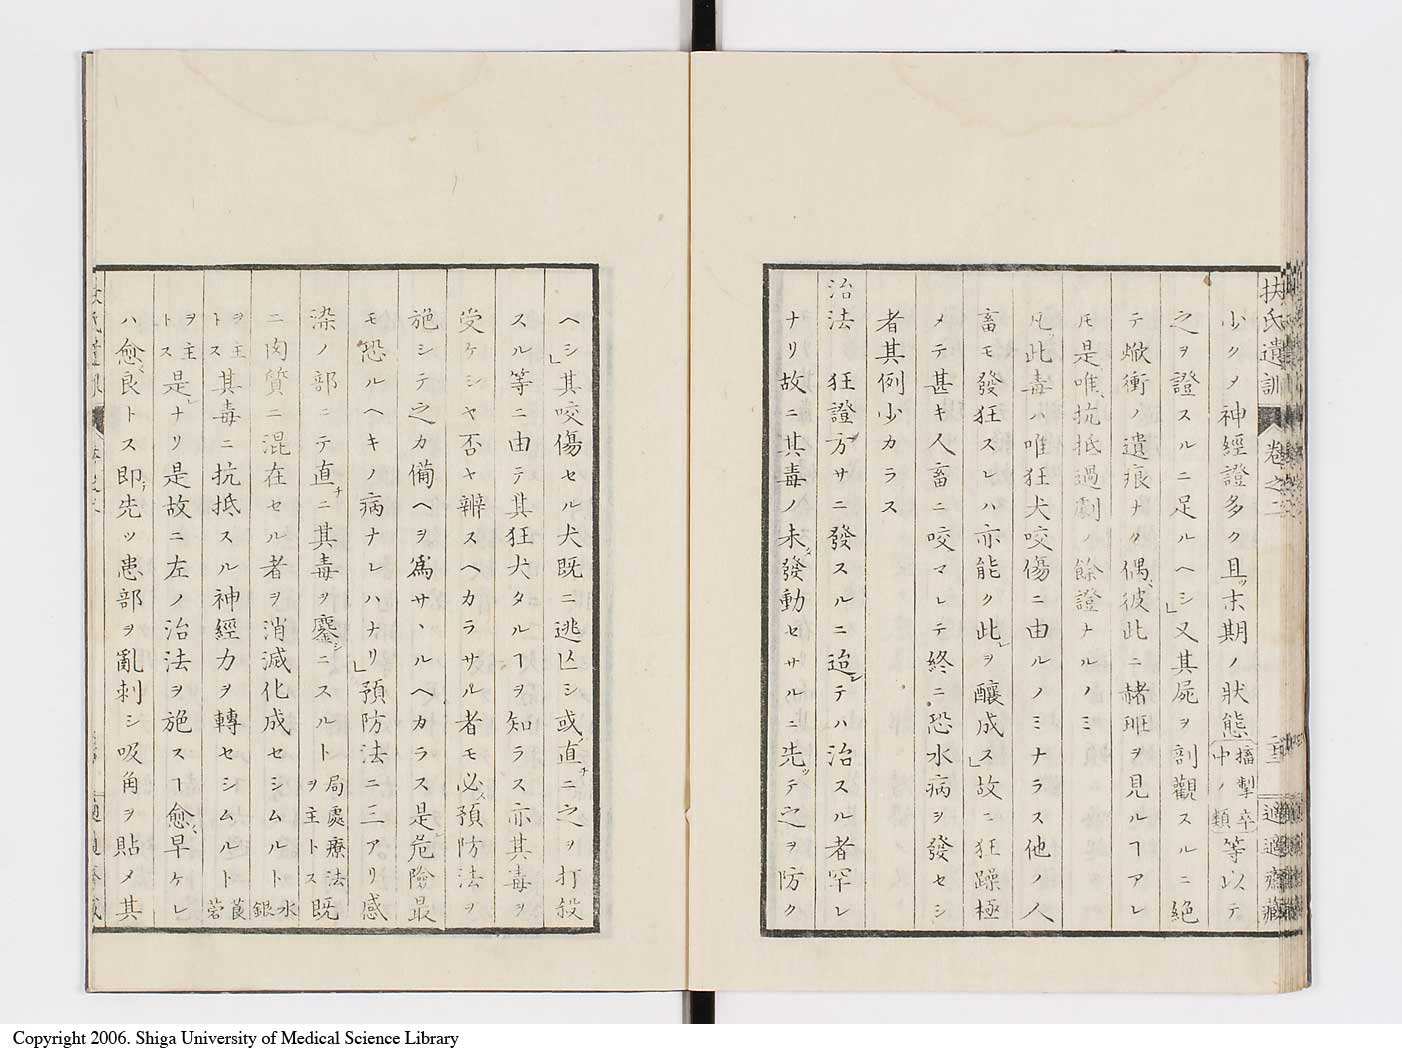 扶氏遺訓 卷之二 二十三 適適齋藏
少クメ神經證多ク且ツ末期ノ狀態(搐掣卒中ノ類)等以テ
之ヲ證スルニ足ルヘシ」又其屍ヲ剖觀スルニ絕
テ焮衝ノ遺痕ナク偶彼此ニ赭斑ヲ見ルヿアレ
モ是唯抗抵過劇ノ餘證ナルノミ
凡此毒ハ唯狂犬咬傷ニ由ルノミナラス他ノ人
畜モ發狂スレハ亦能ク此ヲ釀成ス」故ニ狂躁極
メテ甚キ人畜ニ咬マレテ終ニ恐水病ヲ發セシ
者其例少カラス
治法 狂證方サニ發スルニ迨テハ治スル者罕レ
ナリ故ニ其毒ノ未タ發動セサルニ先ツテ之ヲ防ク
ヘシ」其咬傷セル犬既ニ逃亡シ或直チニ之ヲ打殺
スル等ニ由テ其狂犬タルヿヲ知ラス亦其毒ヲ
受ケシヤ否ヤ辨スヘカラサル者モ必ス預防法ヲ
施シテ之カ備ヘヲ爲サヽルヘカラス是危險最
モ恐ルヘキノ病ナレハナリ」預防法ニ三アリ感
染ノ部ニテ直チニ其毒ヲ鏖シニスルト局處療法ヲ主トス既
ニ肉質ニ混在セル者ヲ消滅化成セシムルト水銀
ヲ主トス其毒ニ抗抵スル神經力ヲ轉セシムルト莨菪
ヲ主トス是ナリ是故ニ左ノ治法ヲ施スヿ愈早ケレ
ハ愈良トス即先ツ患部ヲ亂刺シ吸角ヲ貼メ其
Copyright 2006. Shiga University of Medical Science Library